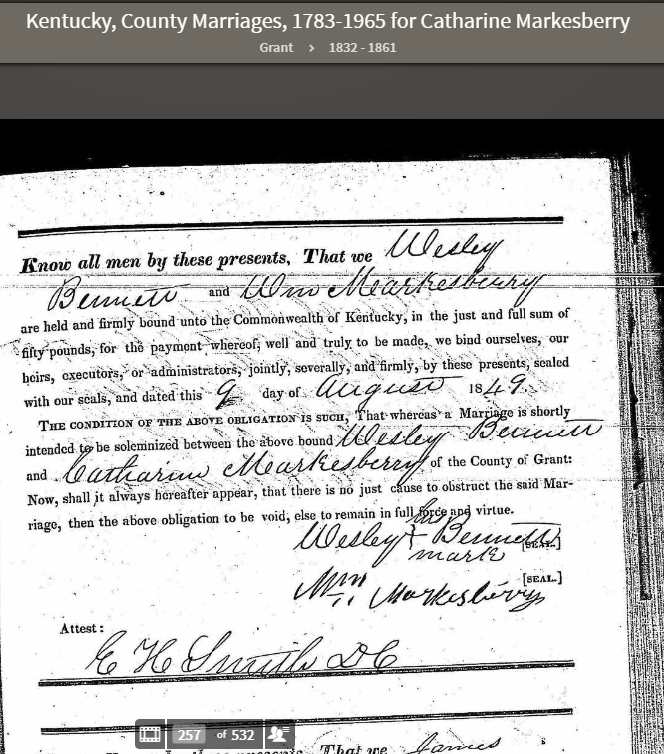 Kentucky, County Marriages, 1783-1965 for Catharine Markesberry
Grant > 1832 - 1861
Know all men by these presents, That we Wesley
Bennett and Wm Markesberry
are held and firmly bound unto the Commonwealth of Kentucky, in the just and full sum of
fifty pounds, for the payment whereof, well and truly to be made, we bind ourselves, our
heirs, executors, or administrators, jointly, severally, and firmly, by these presents, sealed
with our seals, and dated this 9 day of August 1849.
THE CONDITION OF THE ABOVE OBLIGATION IS SUCH, That whereas a Marriage is shortly
intended to be solemnized between the above bound Wesley Bennett
and Catharine Markesberry of the County of Grant:
Now, shall it always hereafter appear, that there is no just cause to obstruct the said Mar-
riage, then the above obligation to be void, else to remain in full force and virtue.
his
Wesley + Bennett [SEAL.]
mark
Wm Markesberry [SEAL.]
Attest:
E H Smith DC
257 of 532
That we James